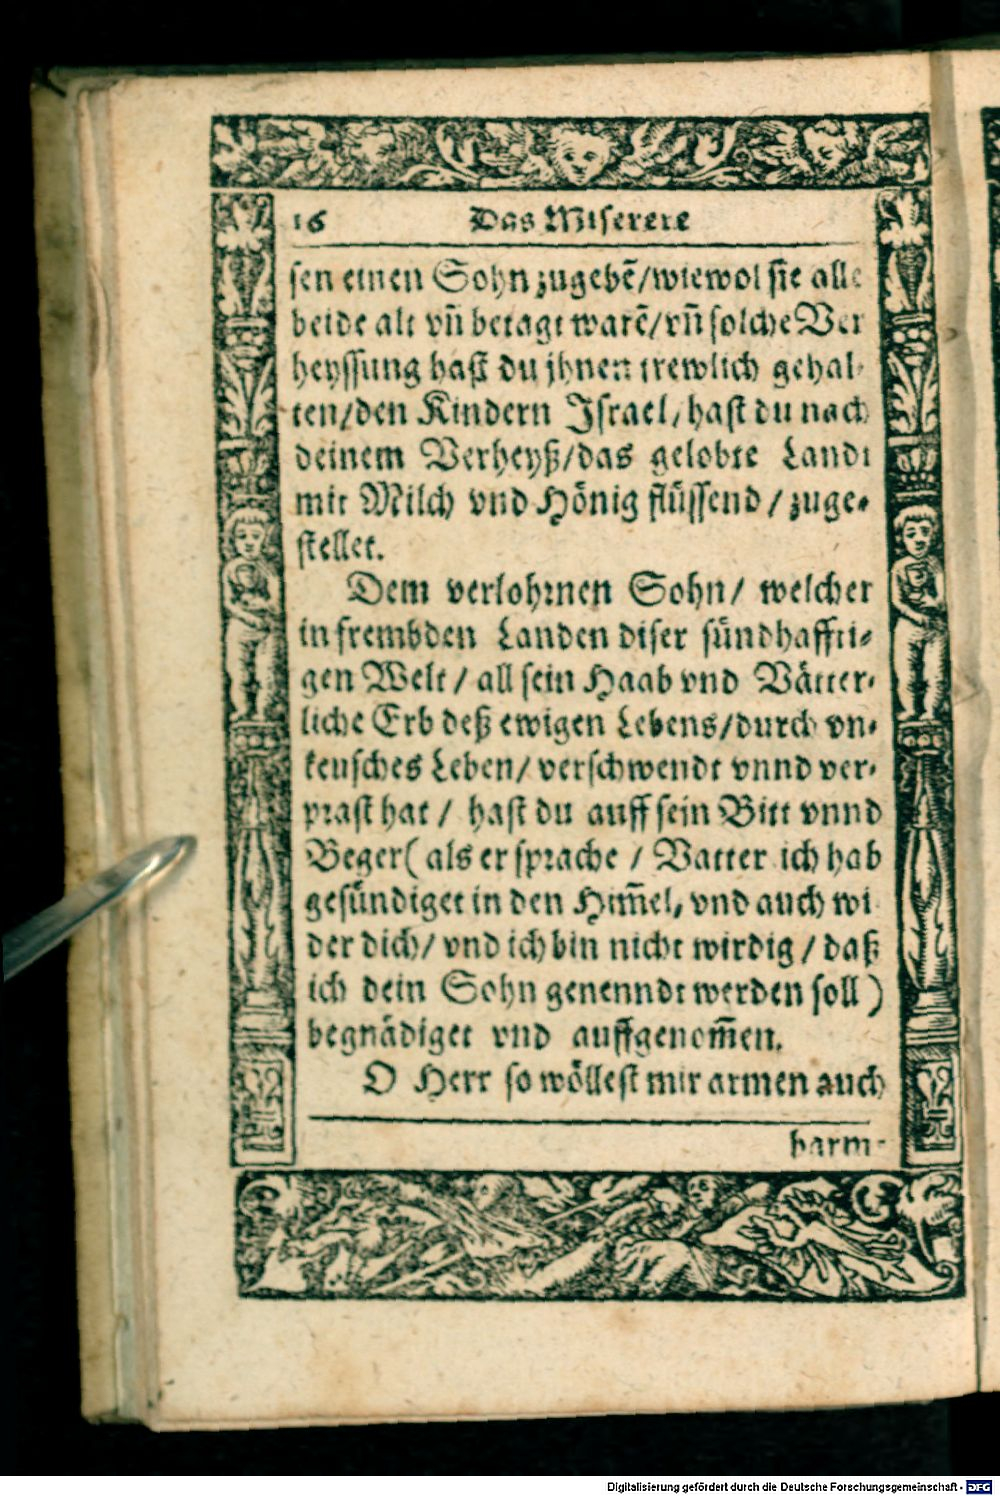 16 Das Miserere
sen einen Sohn zugebẽ/wiewol sie alle
beide alt vñ betagt warẽ/vñ solche Ver
heyssung hast du jhnen trewlich gehal-
ten/den Kindern Israel/hast du nach
deinem Verheyß/das gelobte Landt
mit Milch vnd Hönig flüssend/zuge-
stellet.
Dem verlohrnen Sohn/ welcher
in frembden Landen diser sündhaffti-
gen Welt/all sein Haab vnd Vätter-
liche Erb deß ewigen Lebens/durch vn-
keusches Leben/verschwendt vnnd ver-
prast hat/ hast du auff sein Bitt vnnd
Beger(als er sprache/Vatter ich hab
gesündiget in den Him̃el, vnd auch wi
der dich/vnd ich bin nicht wirdig/daß
ich dein Sohn genenndt werden soll)
begnädiget vnd auffgenom̃en.
O Herr so wöllest mir armen auch
barm-
Digitalisierung gefördert durch die Deutsche Forschungsgemeinschaft - DFG